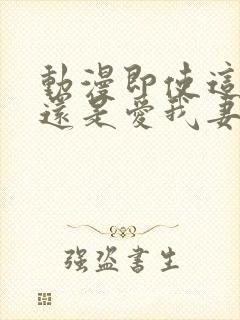 動漫即使這
還是愛我妻
強盜書生